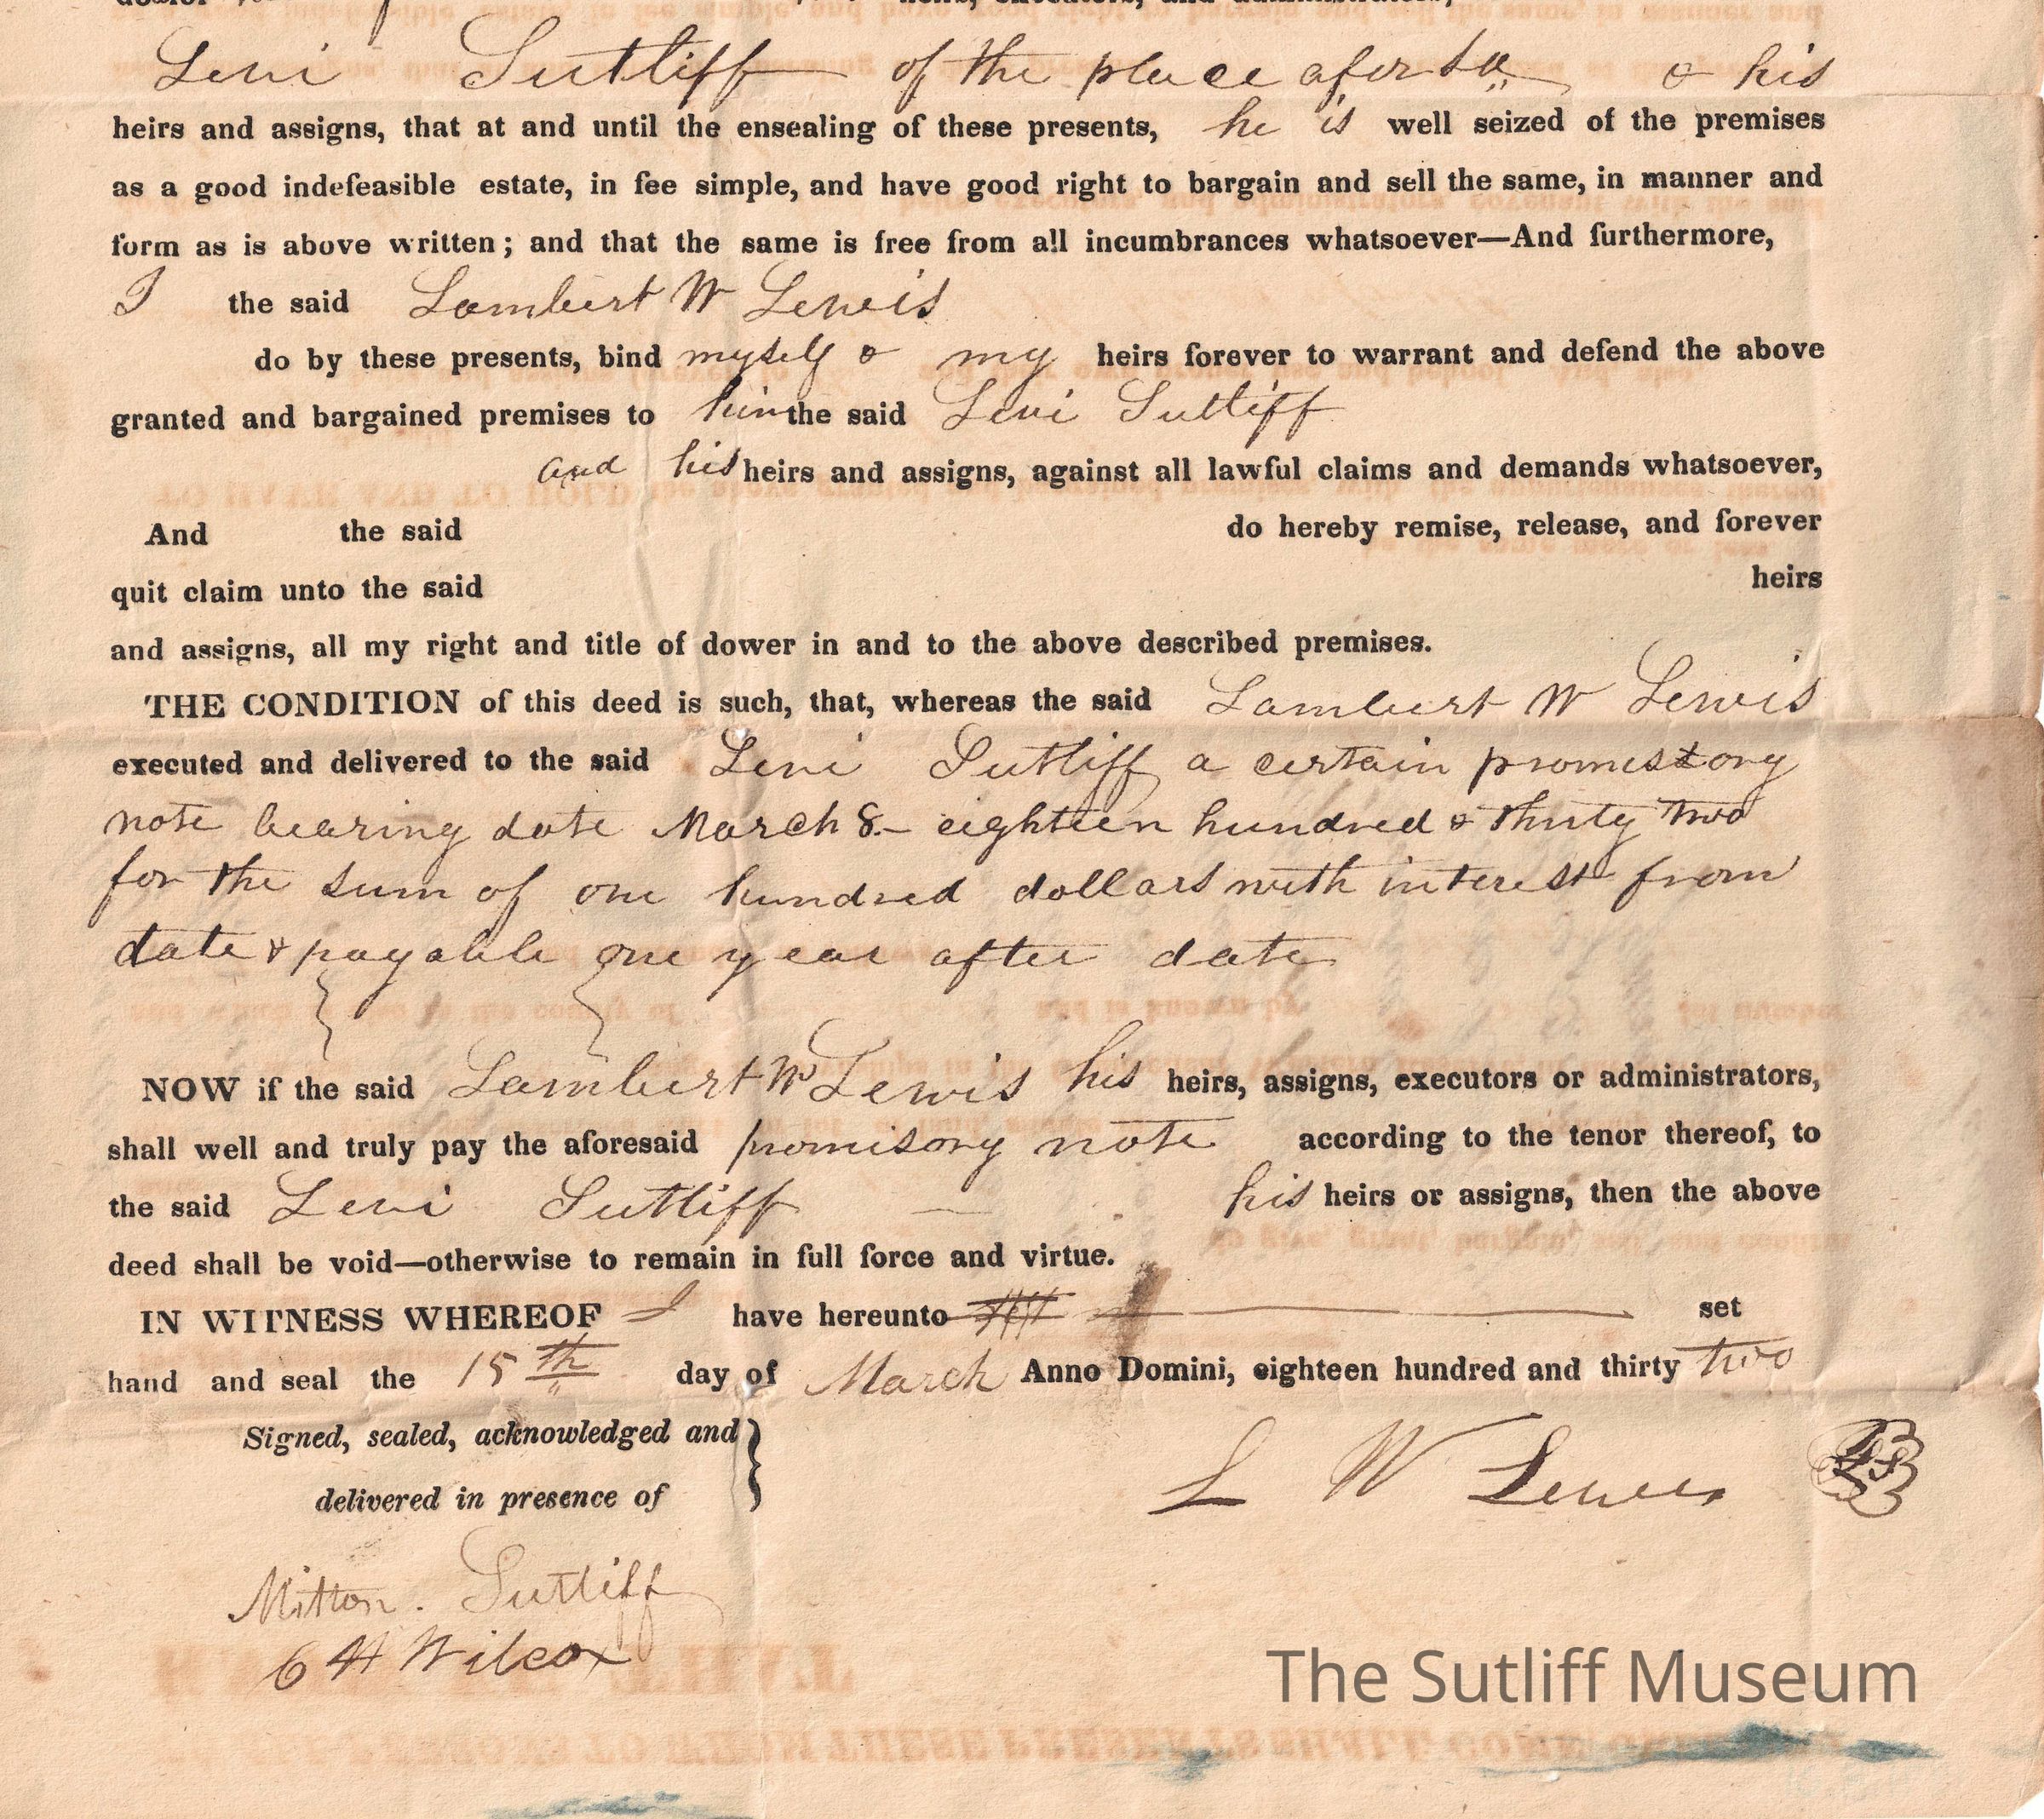 heirs, executors, and administrators,
Levi Sutliff of the place afors'd & his
heirs and assigns, that at and until the ensealing of these presents, he is well seized of the premises
as a good indefeasible estate, in fee simple, and have good right to bargain and sell the same, in manner and
form as is above written; and that the same is free from all incumbrances whatsoever—And furthermore,
I the said Lambert W Lewis
do by these presents, bind myself & my heirs forever to warrant and defend the above
granted and bargained premises to him the said Levi Sutliff
and his heirs and assigns, against all lawful claims and demands whatsoever,
And the said do hereby remise, release, and forever
quit claim unto the said heirs
and assigns, all my right and title of dower in and to the above described premises.
THE CONDITION of this deed is such, that, whereas the said Lambert W Lewis
executed and delivered to the said Levi Sutliff a certain promissory
note bearing date March 8 - eighteen hundred & thirty two
for the sum of one hundred dollars with interest from
date & payable one year after date
NOW if the said Lambert W Lewis his heirs, assigns, executors or administrators,
shall well and truly pay the aforesaid promisory note according to the tenor thereof, to
the said Levi Sutliff his heirs or assigns, then the above
deed shall be void—otherwise to remain in full force and virtue.
IN WITNESS WHEREOF I have hereunto set
hand and seal the 15th day of March Anno Domini, eighteen hundred and thirty two
Signed, sealed, acknowledged and
delivered in presence of
L W Lewis LS
Milton Sutliff
C H Wilcox
The Sutliff Museum